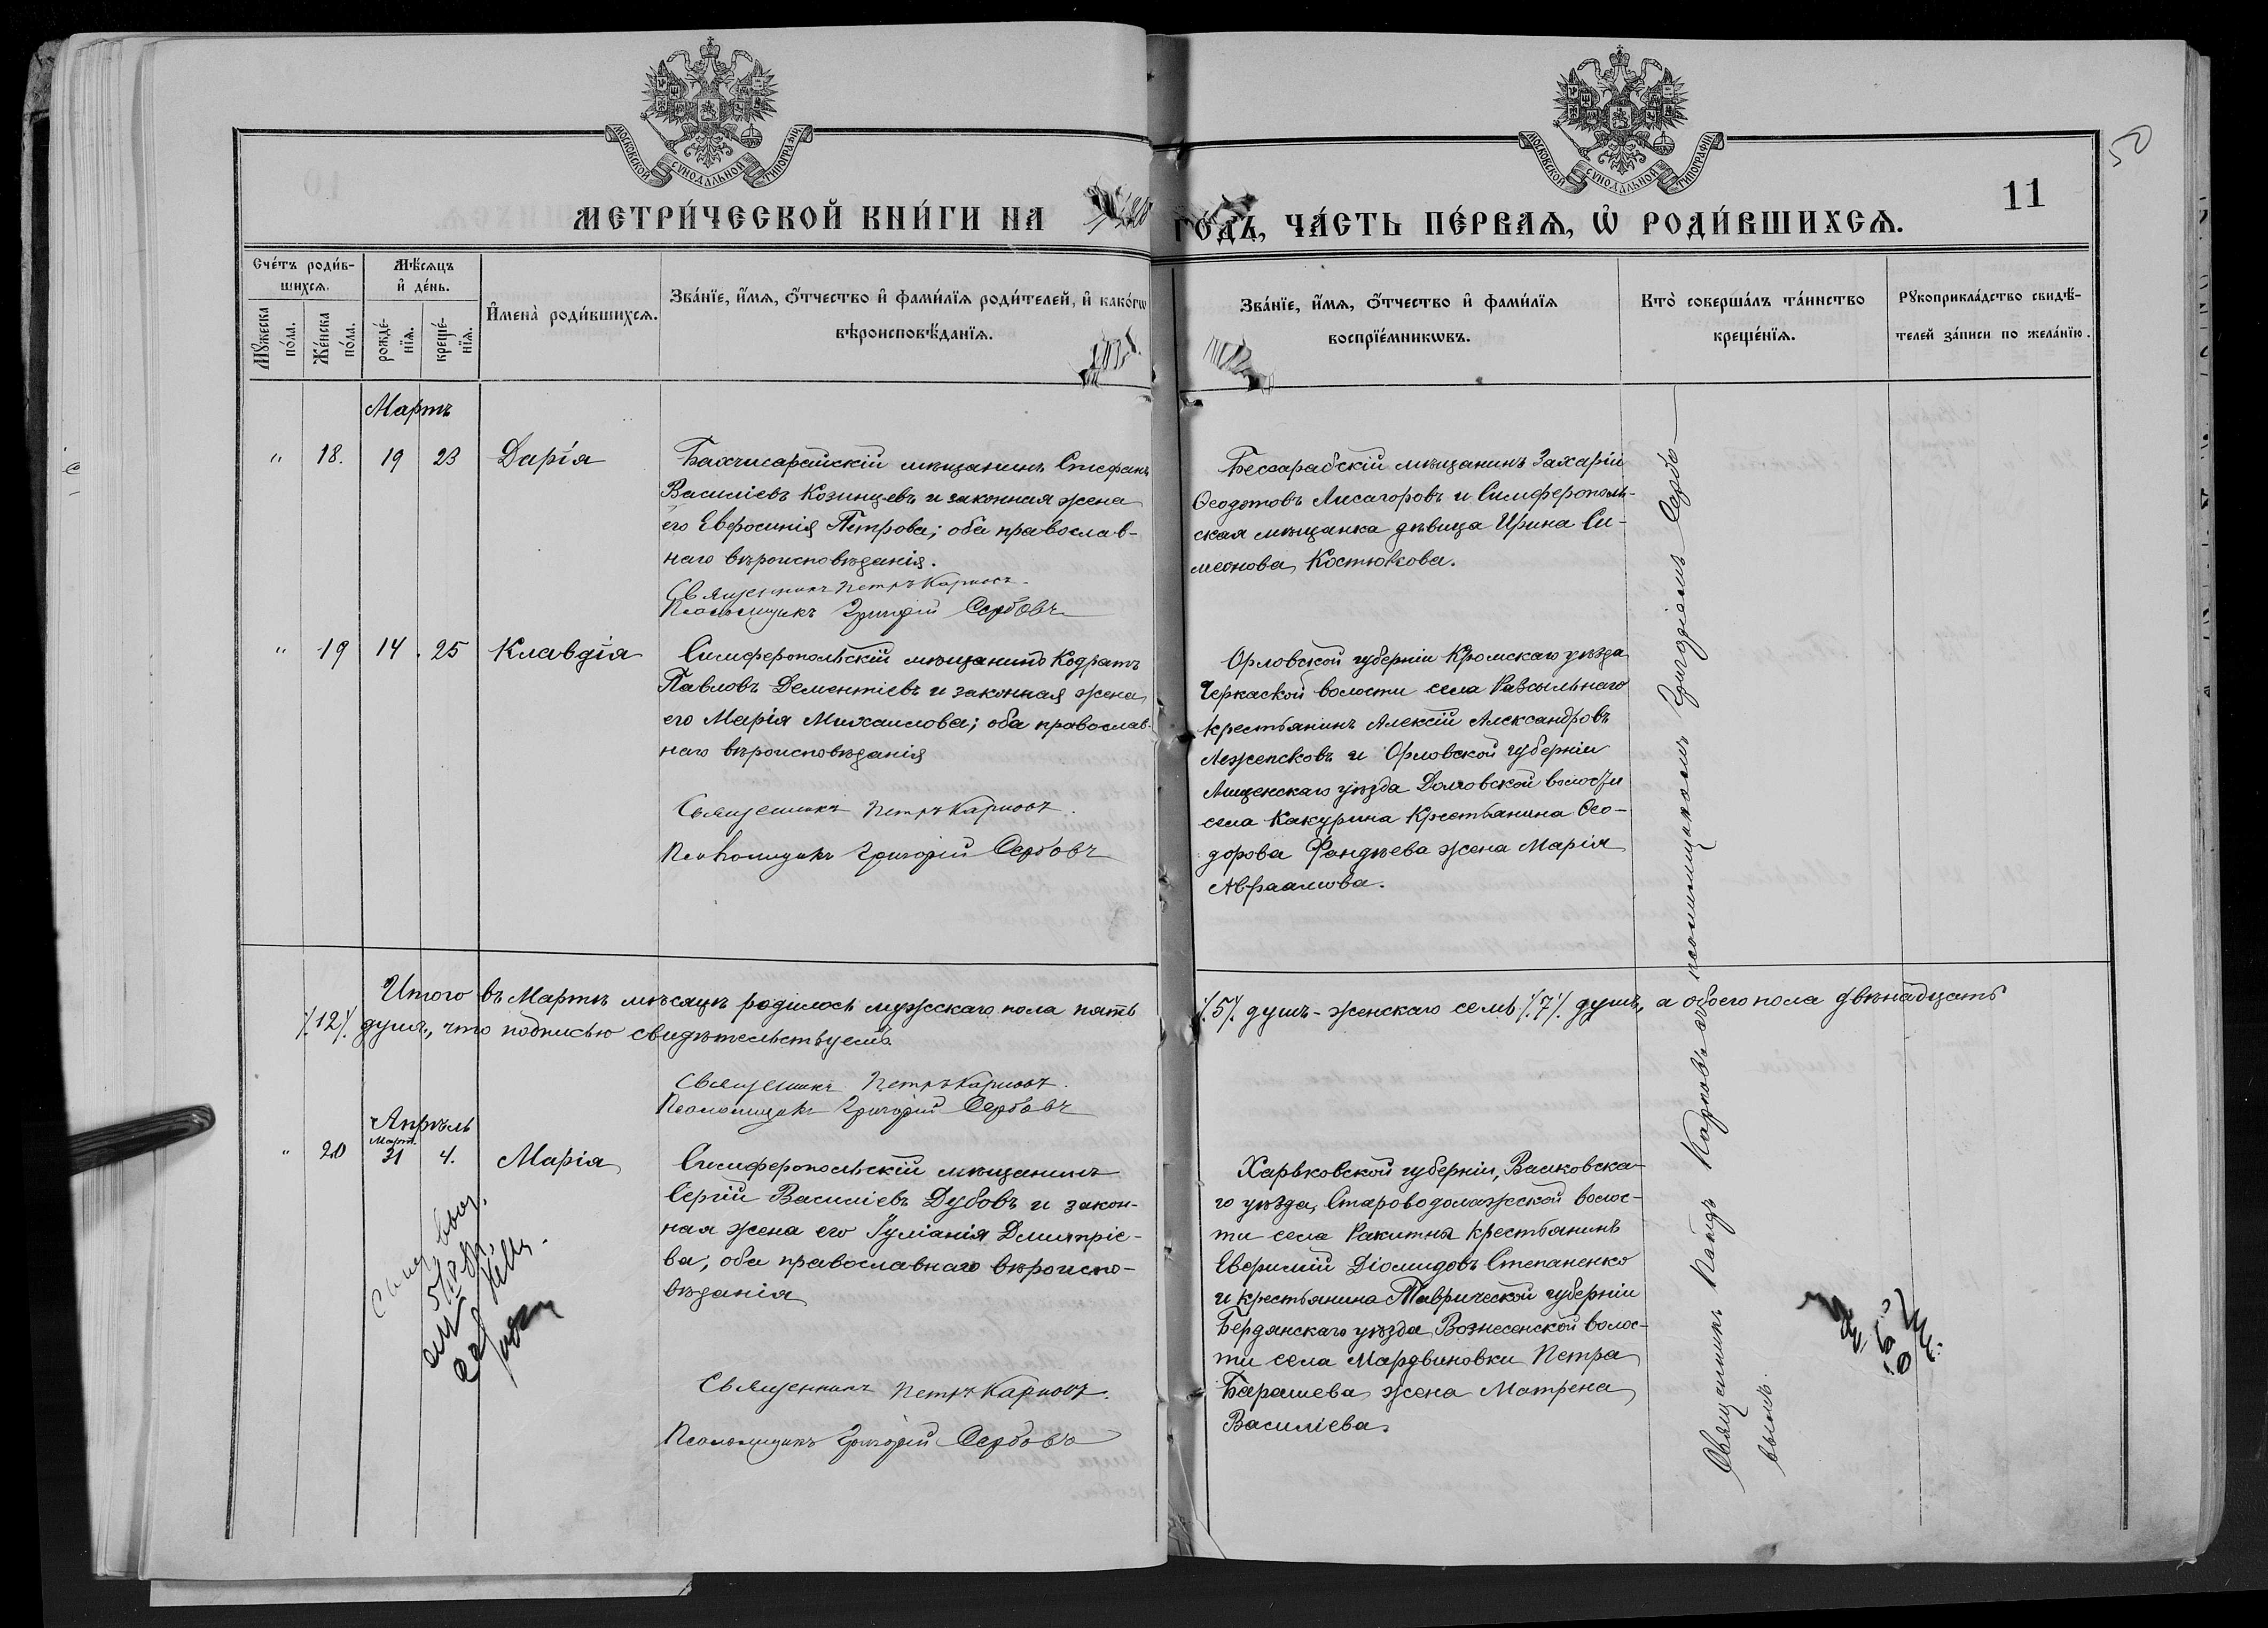 МОСКОВСКОЙ СѴНОДАЛЬНОЙ ТИПОГРАФІИ
МОСКОВСКОЙ СѴНОДАЛЬНОЙ ТИПОГРАФІИ
50
11
МЕТРИ́ЧЕСКОЙ КНИ́ГИ НА
ГО́ДЪ, ЧА́СТЬ ПЕ́РВАѦ, Ѡ҆ РОДИ́ВШИХСѦ.
Сче́тъ роди́в-
шихсѧ.
Мꙋ́жеска
по́ла.
Же́нска
по́ла.
Мѣ́сѧцъ
и҆ де́нь.
рожде́-
нїѧ.
креще́-
нїѧ.
И҆мена̀ роди́вшихсѧ.
Зва́нїе, и҆́мѧ, ѻ҆́тчество и҆ фами́лїѧ роди́телей, и҆ како́гѡ
вѣроисповѣ́данїѧ.
Зва́нїе, и҆́мѧ, ѻ҆́тчество и҆ фами́лїѧ
воспрїе́мникѡвъ.
Кто̀ соверша́лъ та́инство
креще́нїѧ.
Рꙋкоприкла́дство свидѣ́-
телей за́писи по жела́нїю.
Мартъ
" 18. 19 23 Дарія
Бахчисарайскій мѣщанинъ Стефанъ
Василіевъ Козинцевъ и законная жена
его Евфросинія Петрова; оба православ-
наго вѣроисповѣданія.
Священникъ Петръ Карповъ.
Псаломщикъ Григорій Сербовъ
Бессарабскій мѣщанинъ Захарій
Ѳеодотовъ Лисагоровъ и Симферополь-
ская мѣщанка дѣвица Ирина Си-
меонова Костюкова.
" 19 14 25 Клавдія
Симферопольскій мѣщанинъ Кодратъ
Павловъ Дементіевъ и законная жена
его Марія Михаилова; оба православ-
наго вѣроисповѣданія
Священникъ Петръ Карповъ.
Псаломщикъ Григорій Сербовъ
Орловской губерніи Кромскаго уѣзда
Черкаской волости села
крестьянинъ Алексій Александровъ
и Орловской губерніи
Мценскаго уѣзда Долговской волости
села Какурина Крестьянина Ѳео-
дорова жена Марія
Авраамова.
Итого въ Мартѣ мѣсяцѣ родилось мужескаго пола пять
./.5./. душъ - женскаго семь ./.7./. душъ, а обоего пола двѣнадцать
./.12./. душъ, что подписью свидѣтельствуемъ.
Священникъ Петръ Карповъ.
Псаломщикъ Григорій Сербовъ
Апрѣль
Март.
" 20 31 4. Марія
Симферопольскій мѣщанинъ
Сергій Василіевъ Дубовъ и закон-
ная жена его Іуліанія Димитріе-
ва; оба православнаго вѣроиспо-
вѣданія
Священникъ Петръ Карповъ.
Псаломщикъ Григорій Сербовъ
Харьковской губерніи, Валковска-
го уѣзда, Староводолажской волос-
ти села Ракитна крестьянинъ
Евфимій Діомидовъ Степаненко
и крестьянина Таврической губерніи
Бердянскаго уѣзда Вознесенской волос-
ти села Мордвиновки Петра
Барашева жена Матрена
Василіева.
Священникъ Карповъ съ псаломщикомъ Григоріемъ Сербо-
вымъ.